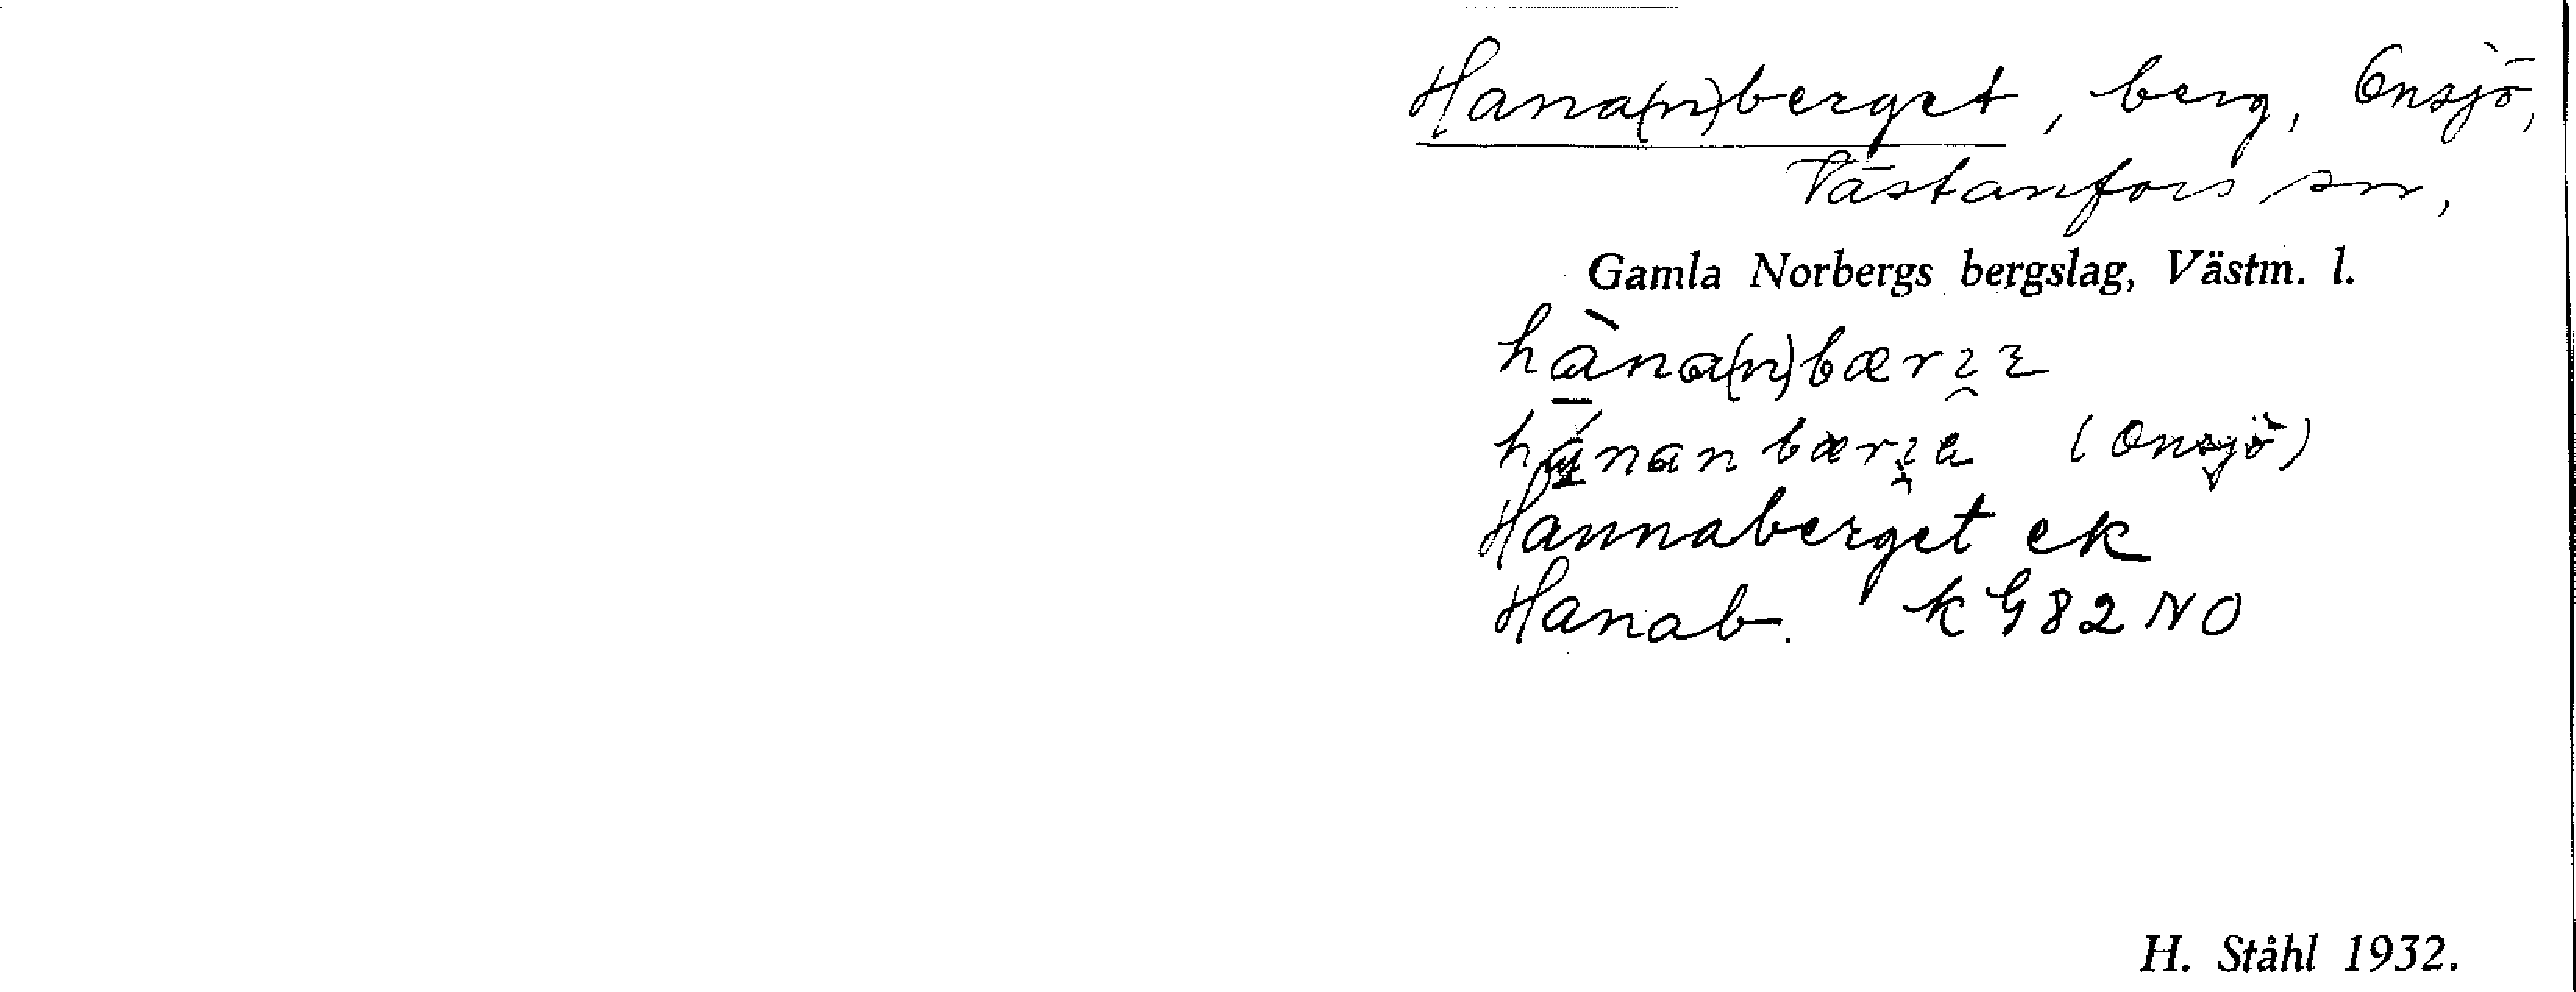 Hana(n)berget, berg, Onsjö,
Västanfors sn,
Gamla Norbergs bergslag, Västm. l.
hàna(n)bær
hánanbær (Onsjö)
Hannaberget ek
Hanab. k G82 NO
H. Ståhl 1932.